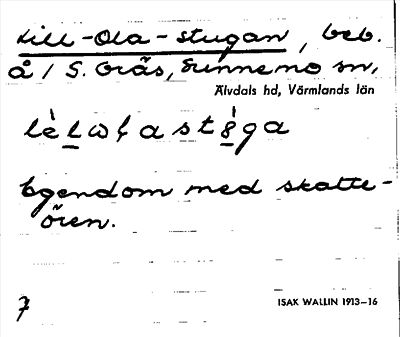 Lill-Ola-stugan, beb.
å / S. Gräs, Sunnemo sn,
Älvdals hd, Värmlands län
Egendom med skatte-
ören.
7
ISAK WALLIN 1913–16